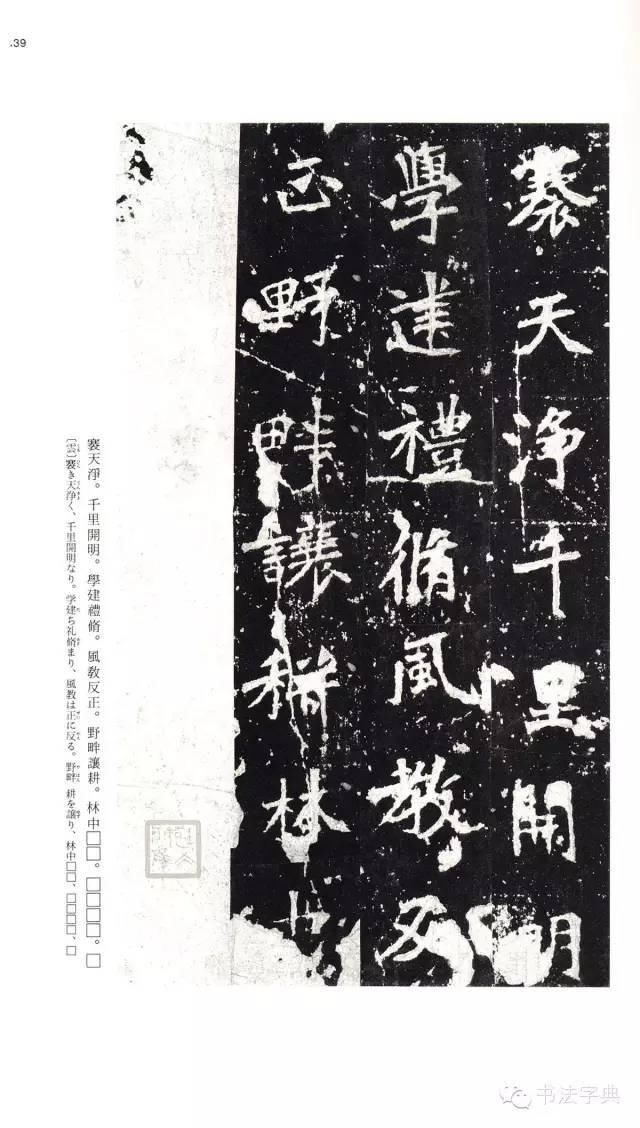 .39
褰天淨千里開明
學建禮脩風教反
正野畔讓耕林中
褰天淨。千里開明。學建禮脩。風敎反正。野畔讓耕。林中□□。□□□□。□
〔雲〕褰き天浄く、千里開明なり。学建ち礼脩まり、風教は正に反る。野畔 耕を譲り、林中□□、□□□□、□
书法字典